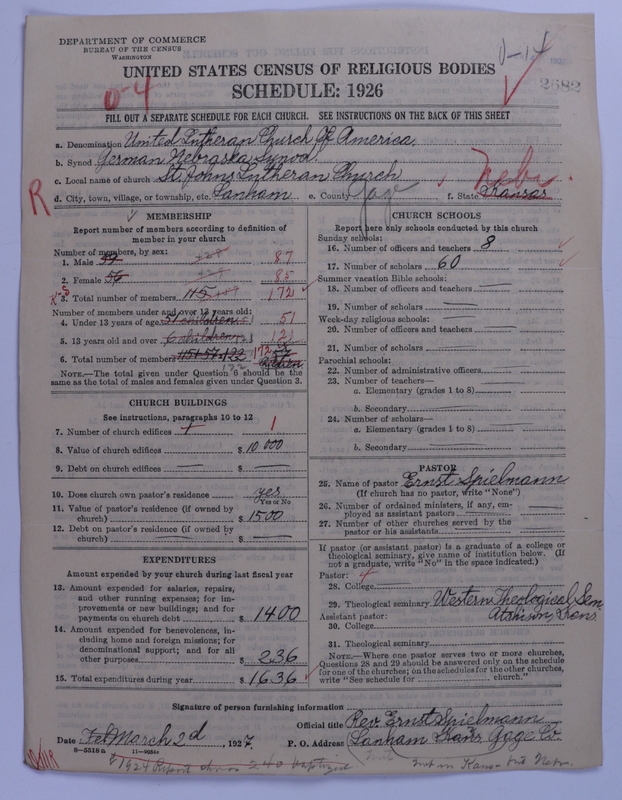 DEPARTMENT OF COMMERCE
BUREAU OF THE CENSUS
WASHINGTON
0-14
2682
UNITED STATES CENSUS OF RELIGIOUS BODIES
0-4
SCHEDULE: 1926
FILL OUT A SEPARATE SCHEDULE FOR EACH CHURCH. SEE INSTRUCTIONS ON THE BACK OF THIS SHEET
a. Denomination United Lutheran Church Of America
b. Synod German Nebraska Synod.
c. Local name of church St. Johns Lutheran Church
Nebr.
R
d. City, town, village, or township, etc. Lanham e. County Gage f. State Kansas
MEMBERSHIP
Report number of members according to definition of
member in your church
Number of members, by sex:
1. Male 87
2. Female 56 85
3. Total number of members 115 172
Number of members under and over 13 years old:
4. Under 13 years of age 51 children 51
5. 13 years old and over 121
6. Total number of members 172
NOTE.—The total given under Question 6 should be the
same as the total of males and females given under Question 3.
CHURCH BUILDINGS
See instructions, paragraphs 10 to 12
7. Number of church edifices 1 1
8. Value of church edifices $ 10 000
9. Debt on church edifices — $ —
10. Does church own pastor's residence yes
Yes or No
11. Value of pastor's residence (if owned by
church) $ 1500
12. Debt on pastor's residence (if owned by
church) — $ —
EXPENDITURES
Amount expended by your church during last fiscal year
13. Amount expended for salaries, repairs,
and other running expenses; for im-
provements or new buildings; and for
payments on church debt $ 1400
14. Amount expended for benevolences, in-
cluding home and foreign missions; for
denominational support; and for all
other purposes $ 236
15. Total expenditures during year $ 1636
CHURCH SCHOOLS
Report here only schools conducted by this church
Sunday schools:
16. Number of officers and teachers 8
17. Number of scholars 60
Summer vacation Bible schools:
18. Number of officers and teachers —
19. Number of scholars —
Week-day religious schools:
20. Number of officers and teachers —
21. Number of scholars —
Parochial schools:
22. Number of administrative officers —
23. Number of teachers—
a. Elementary (grades 1 to 8) —
b. Secondary —
24. Number of scholars—
a. Elementary (grades 1 to 8) —
b. Secondary —
PASTOR
25. Name of pastor Ernst Spielmann
(If church has no pastor, write "None")
26. Number of ordained ministers, if any, em-
ployed as assistant pastors —
27. Number of other churches served by the
pastor or his assistants —
If pastor (or assistant pastor) is a graduate of a college or
theological seminary, give name of institution below. (If
not a graduate, write "No" in the space indicated.)
Pastor:
28. College —
29. Theological seminary Western Theological Sem
Assistant pastor: Atchison, Kans.
30. College
31. Theological seminary
NOTE.—Where one pastor serves two or more churches,
Questions 28 and 29 should be answered only on the schedule
for one of the churches; on the schedules for the other churches,
write "See schedule for church."
Signature of person furnishing information
Official title Rev. Ernst Spielmann
Date March 2d, 1927 P. O. Address Lanham Kans Gage Co.
8—5518a 11—9254